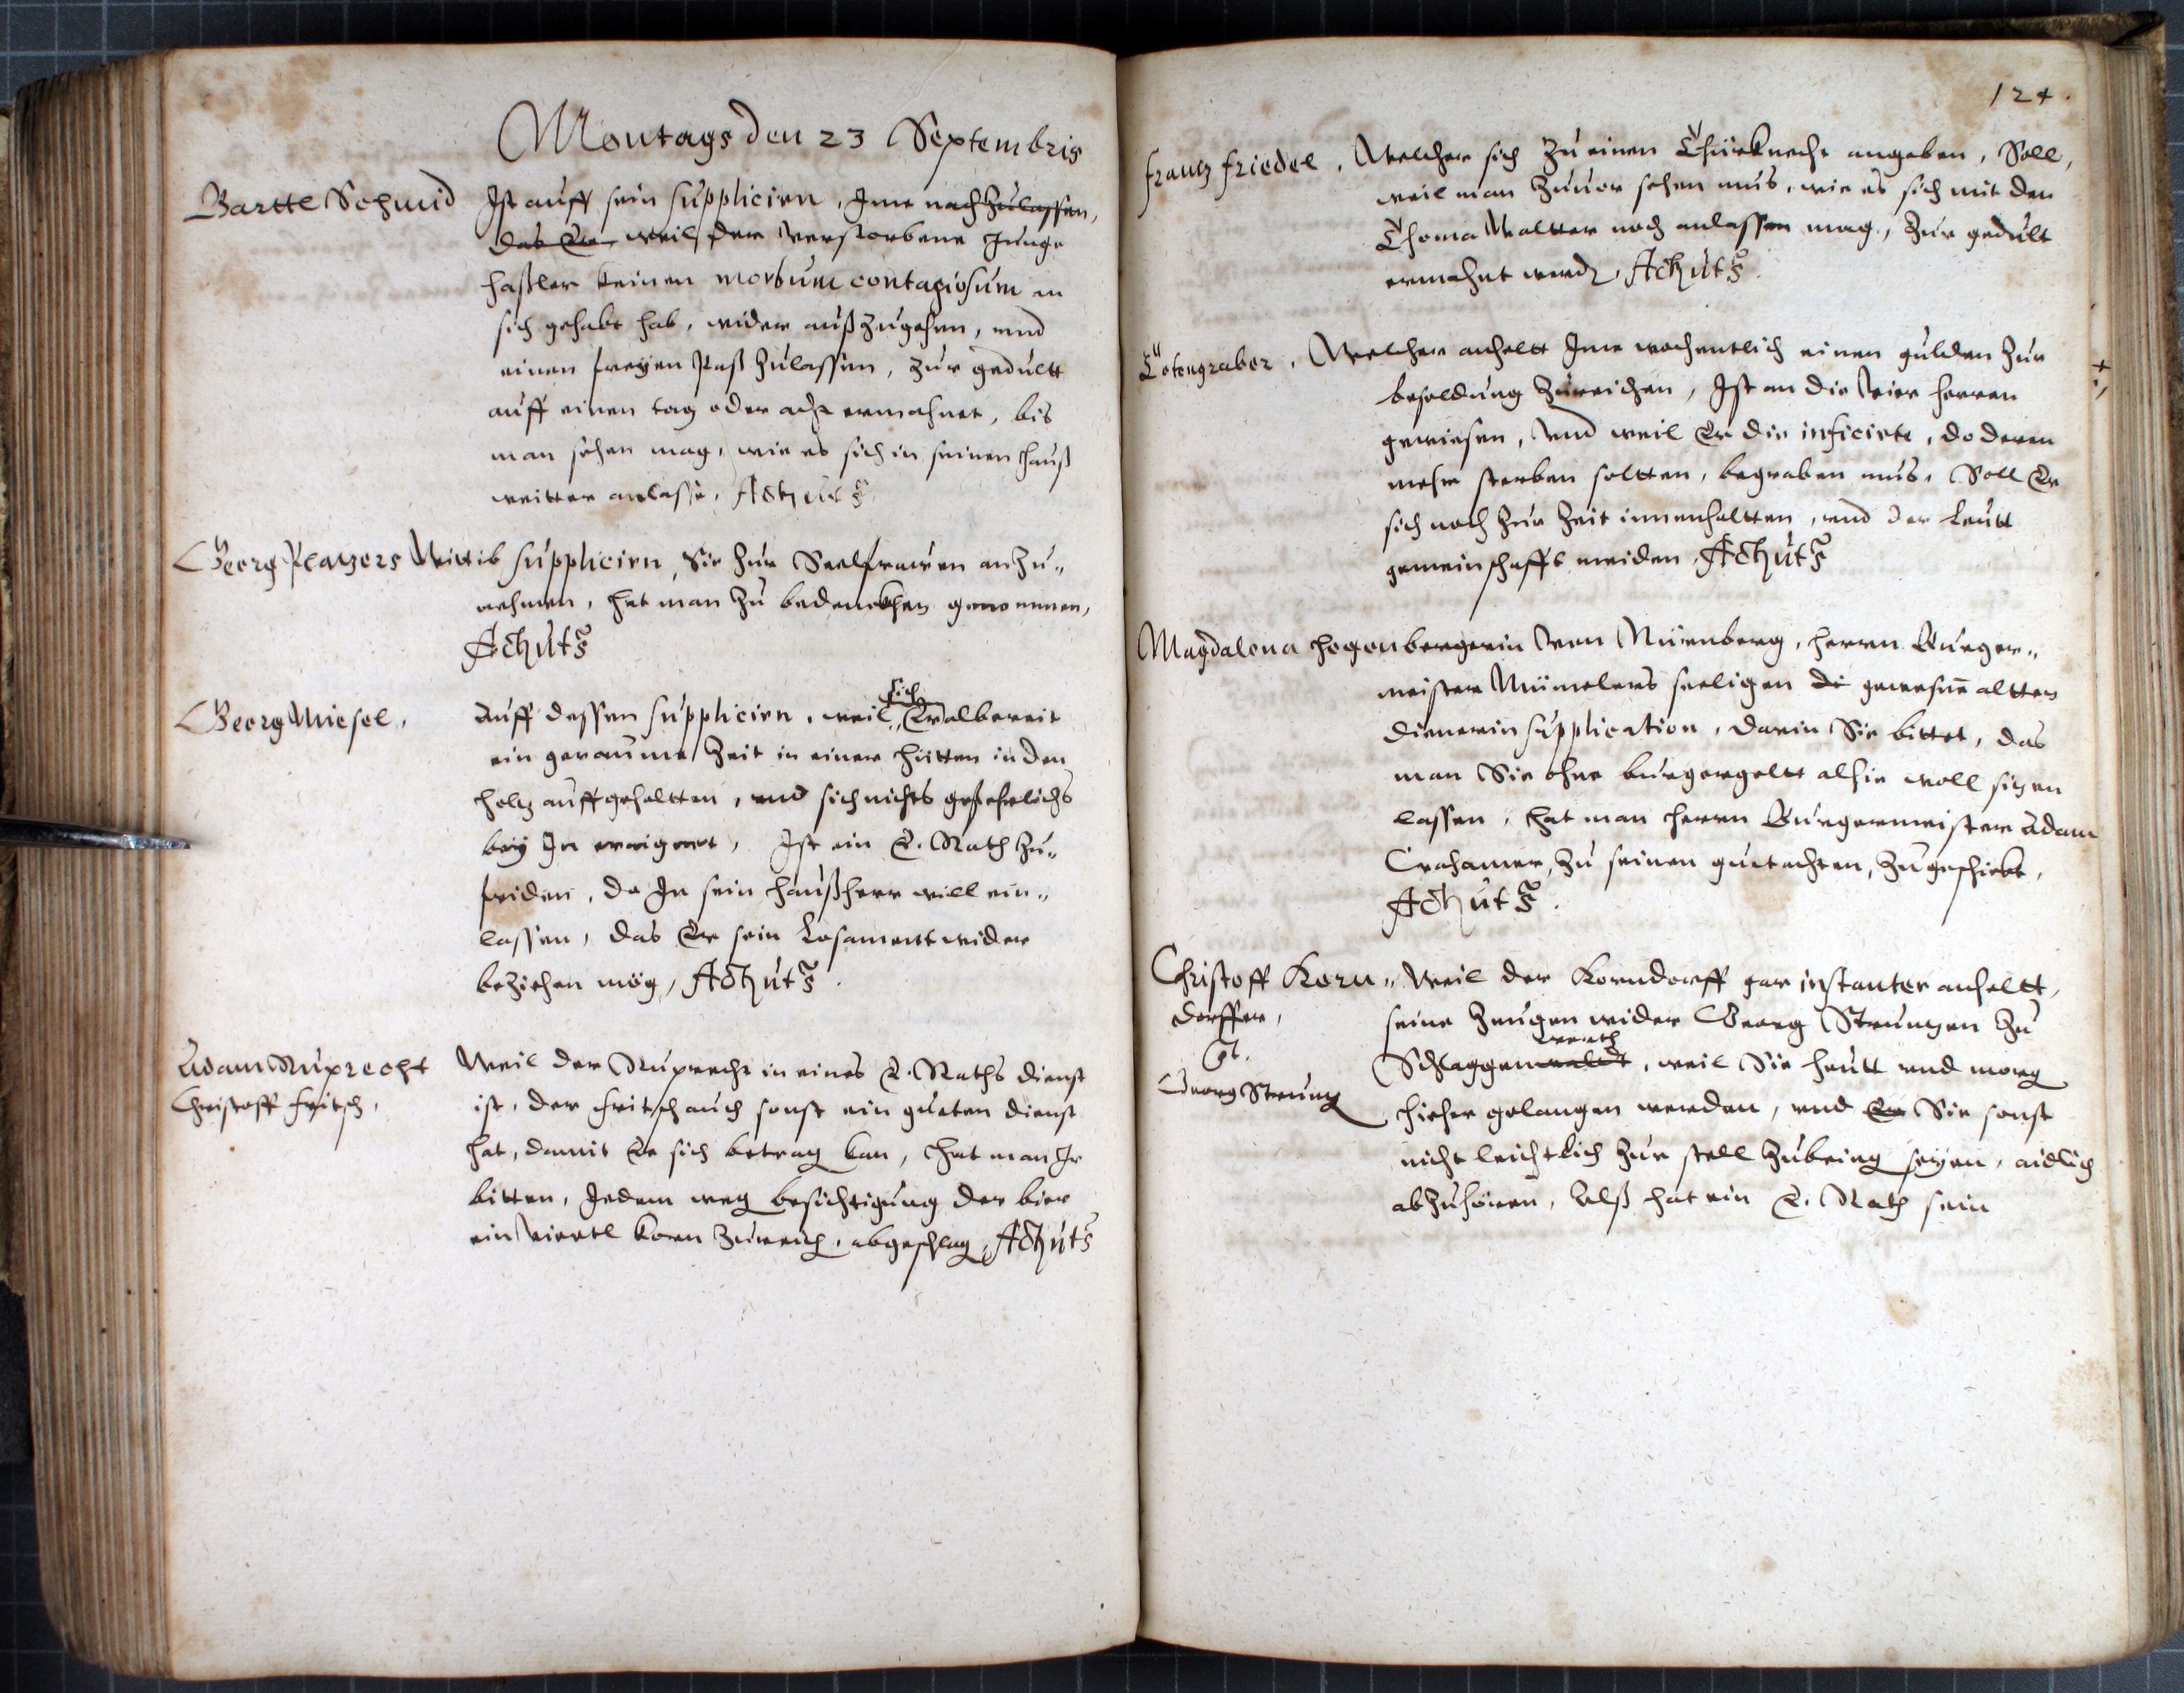 Montags den 23 Septembris
Bartl Schmid Ist auff sein supplicirn, Ime nachzulassen,
das Er weil der verstorbene Junge
Haßler keinen morbum contagiosum an
sich gehabt hab, wider außzugehen, und
einen freyen Paß zulassen, zur gedultt
auff einen tag oder acht ermahnet, bis
man sehen mag, wie es sich in seinen Hauß
weitter anlasse, Act ut s
Georg Wittib supplicirn, Sie zur Seelfrawen anzu„
nehmen, hat man zu bedenckhen genommen,
Act ut s
Georg Miesel, Auff dessen supplicirn, weil sich Er albereit
ein geraume Zeit in einer hütten in den
holtz auffgehaltten, und sich nichts gefehrlichs
bey Im ereignet, Ist ein E. Rath zu„
friden, da In sein Haußherr will ein„
lassen, das Er sein Losament wider
beziehen mög, Act ut s.
Adam Ruprecht Weil der Ruprecht in eines E. Raths dienst
Christoff Fritsch, ist, der Fritsch auch sonst ein gueten dienst
hat, damit Er sich betrag kan, Hat man Ir
bitten, Jedem weg besichtigung der bier
ein Viertl korn zureich, abgeschlag, Act ut s
124.
Frantz Friedel, Welcher sich zu einen Thürknecht angeben, Soll,
weil man zuvor sehen mus, wie es sich mit den
Thoma Waltter noch anlassen mag, zur gedult
ermahnt werd, Act ut s.
Totengraber, Welcher anhelt Ime wochentlich einen gulden zur
besoldung zureichen, Ist an die Vier herren
gewiesen, Und weil Er die inficirte, do deren
mehr sterben soltten, begraben mus, Soll Er
sich noch zur Zeit innenhaltten, und der Leutt
gemeinschafft meiden, Act ut s
Magdalena Hogenbergerin von Nürnberg, herrn Burger„
meister Mümelers seeligen di gewesne altten
dienerin supplication, darin Sie bittet, das
man Sie ohne burgergeltt alhie woll sitzen
lassen, Hat man Herrn Burgermeister Adam
Crahamer, zu seinen guetachten, zugeschickt,
Act ut s.
Christoff Korn„ Weil der Korndorff gar instanter anheltt,
dorffer, seine Zeugen wider Georg Strunzen zu
Ct. Schlaggenwaldt werth, weil Sie heutt und morg
Georg Strunz hieher gelangen werden, und Er Sie sonst
nicht leichtlich zur stell zubring seyen, aidlich
abzuhören, Alß hat ein E. Rath sein